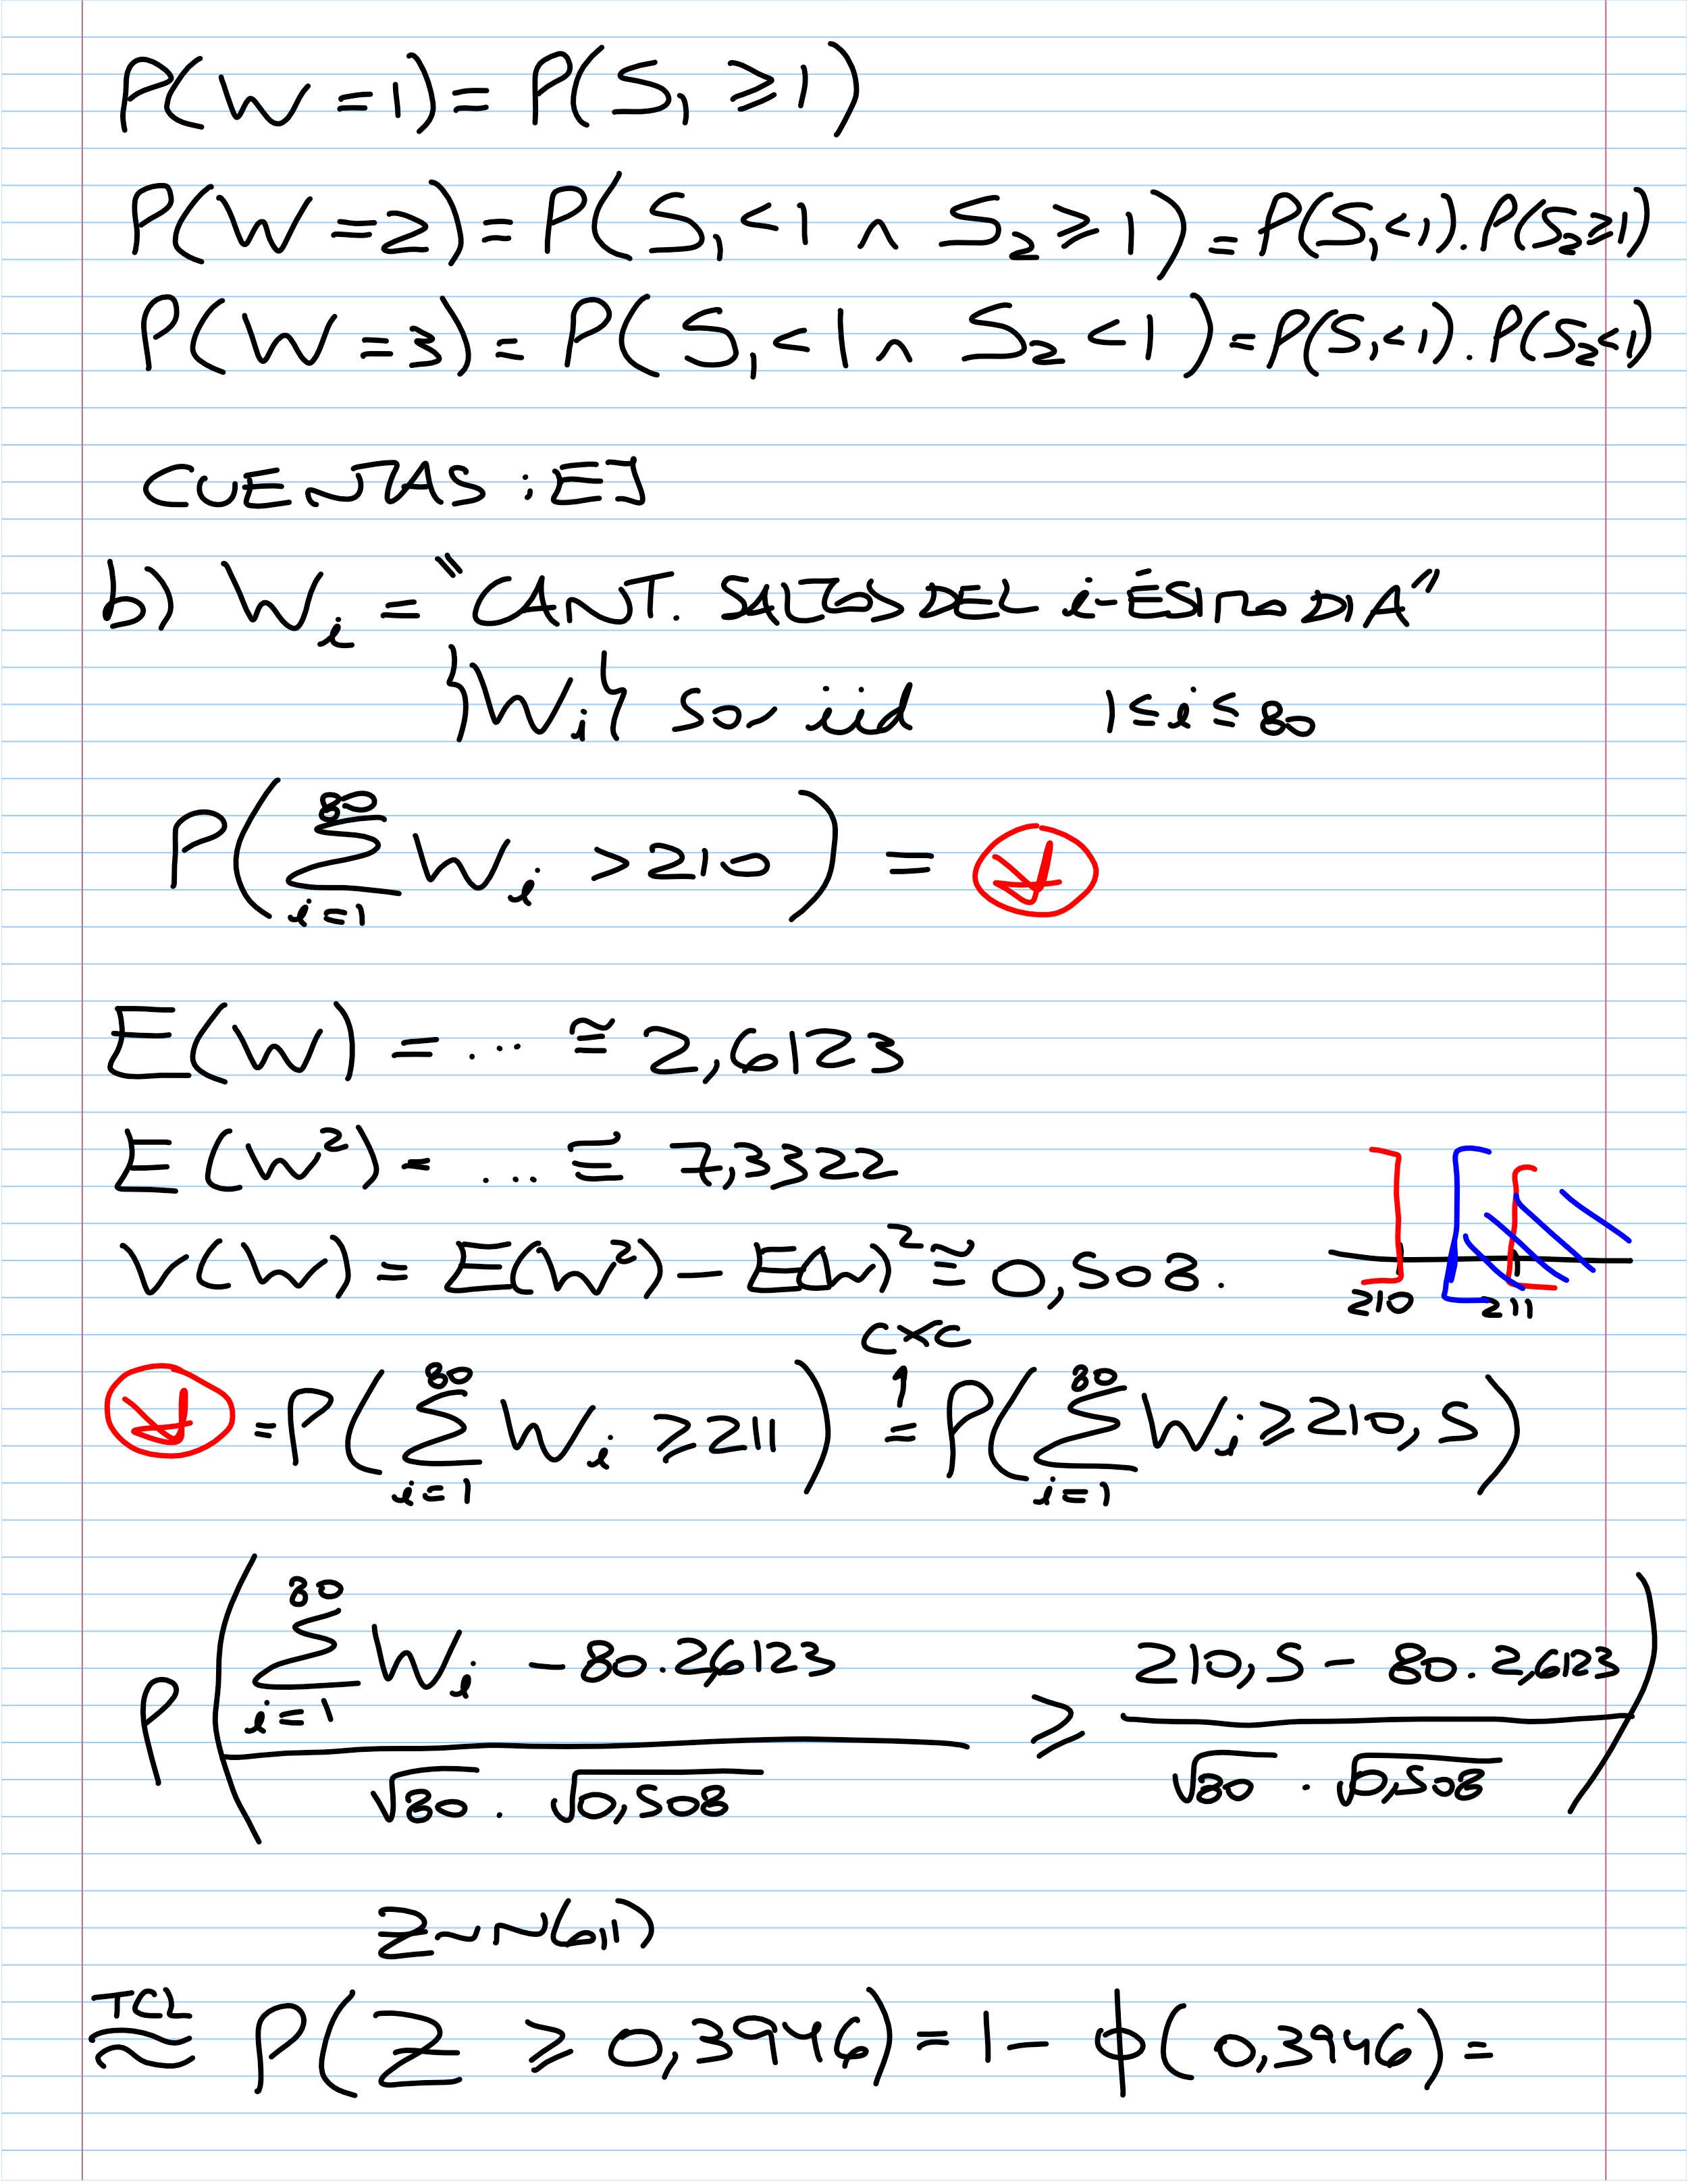 P(W=1) = P(S₁ ≥ 1)
P(W=2) = P(S₁ < 1 ∧ S₂ ≥ 1) = P(S₁<1) . P(S₂≥1)
P(W=3) = P(S₁ < 1 ∧ S₂ < 1) = P(S₁<1) . P(S₂<1)
CUENTAS : EJ
b) Wᵢ = "CANT. SALTOS DEL i-ÉSIMO DIA"
{Wᵢ} son iid 1 ≤ i ≤ 80
P(∑_{i=1}^{80} Wᵢ > 210) =
E(W) = ... ≅ 2,6123
E(W²) = ... ≅ 7,3322
V(W) = E(W²) - E(W)² ≅ 0,508.
210 211
CxC
= P(∑_{i=1}^{80} Wᵢ ≥ 211) = P(∑_{i=1}^{80} Wᵢ ≥ 210,5)
P((∑_{i=1}^{80} Wᵢ - 80.2,6123) / (√80 . √0,508) ≥ (210,5 - 80.2,6123) / (√80 . √0,508))
Z ~ N(0,1)
TCL ≈ P(Z ≥ 0,3946) = 1 - ϕ(0,3946) =